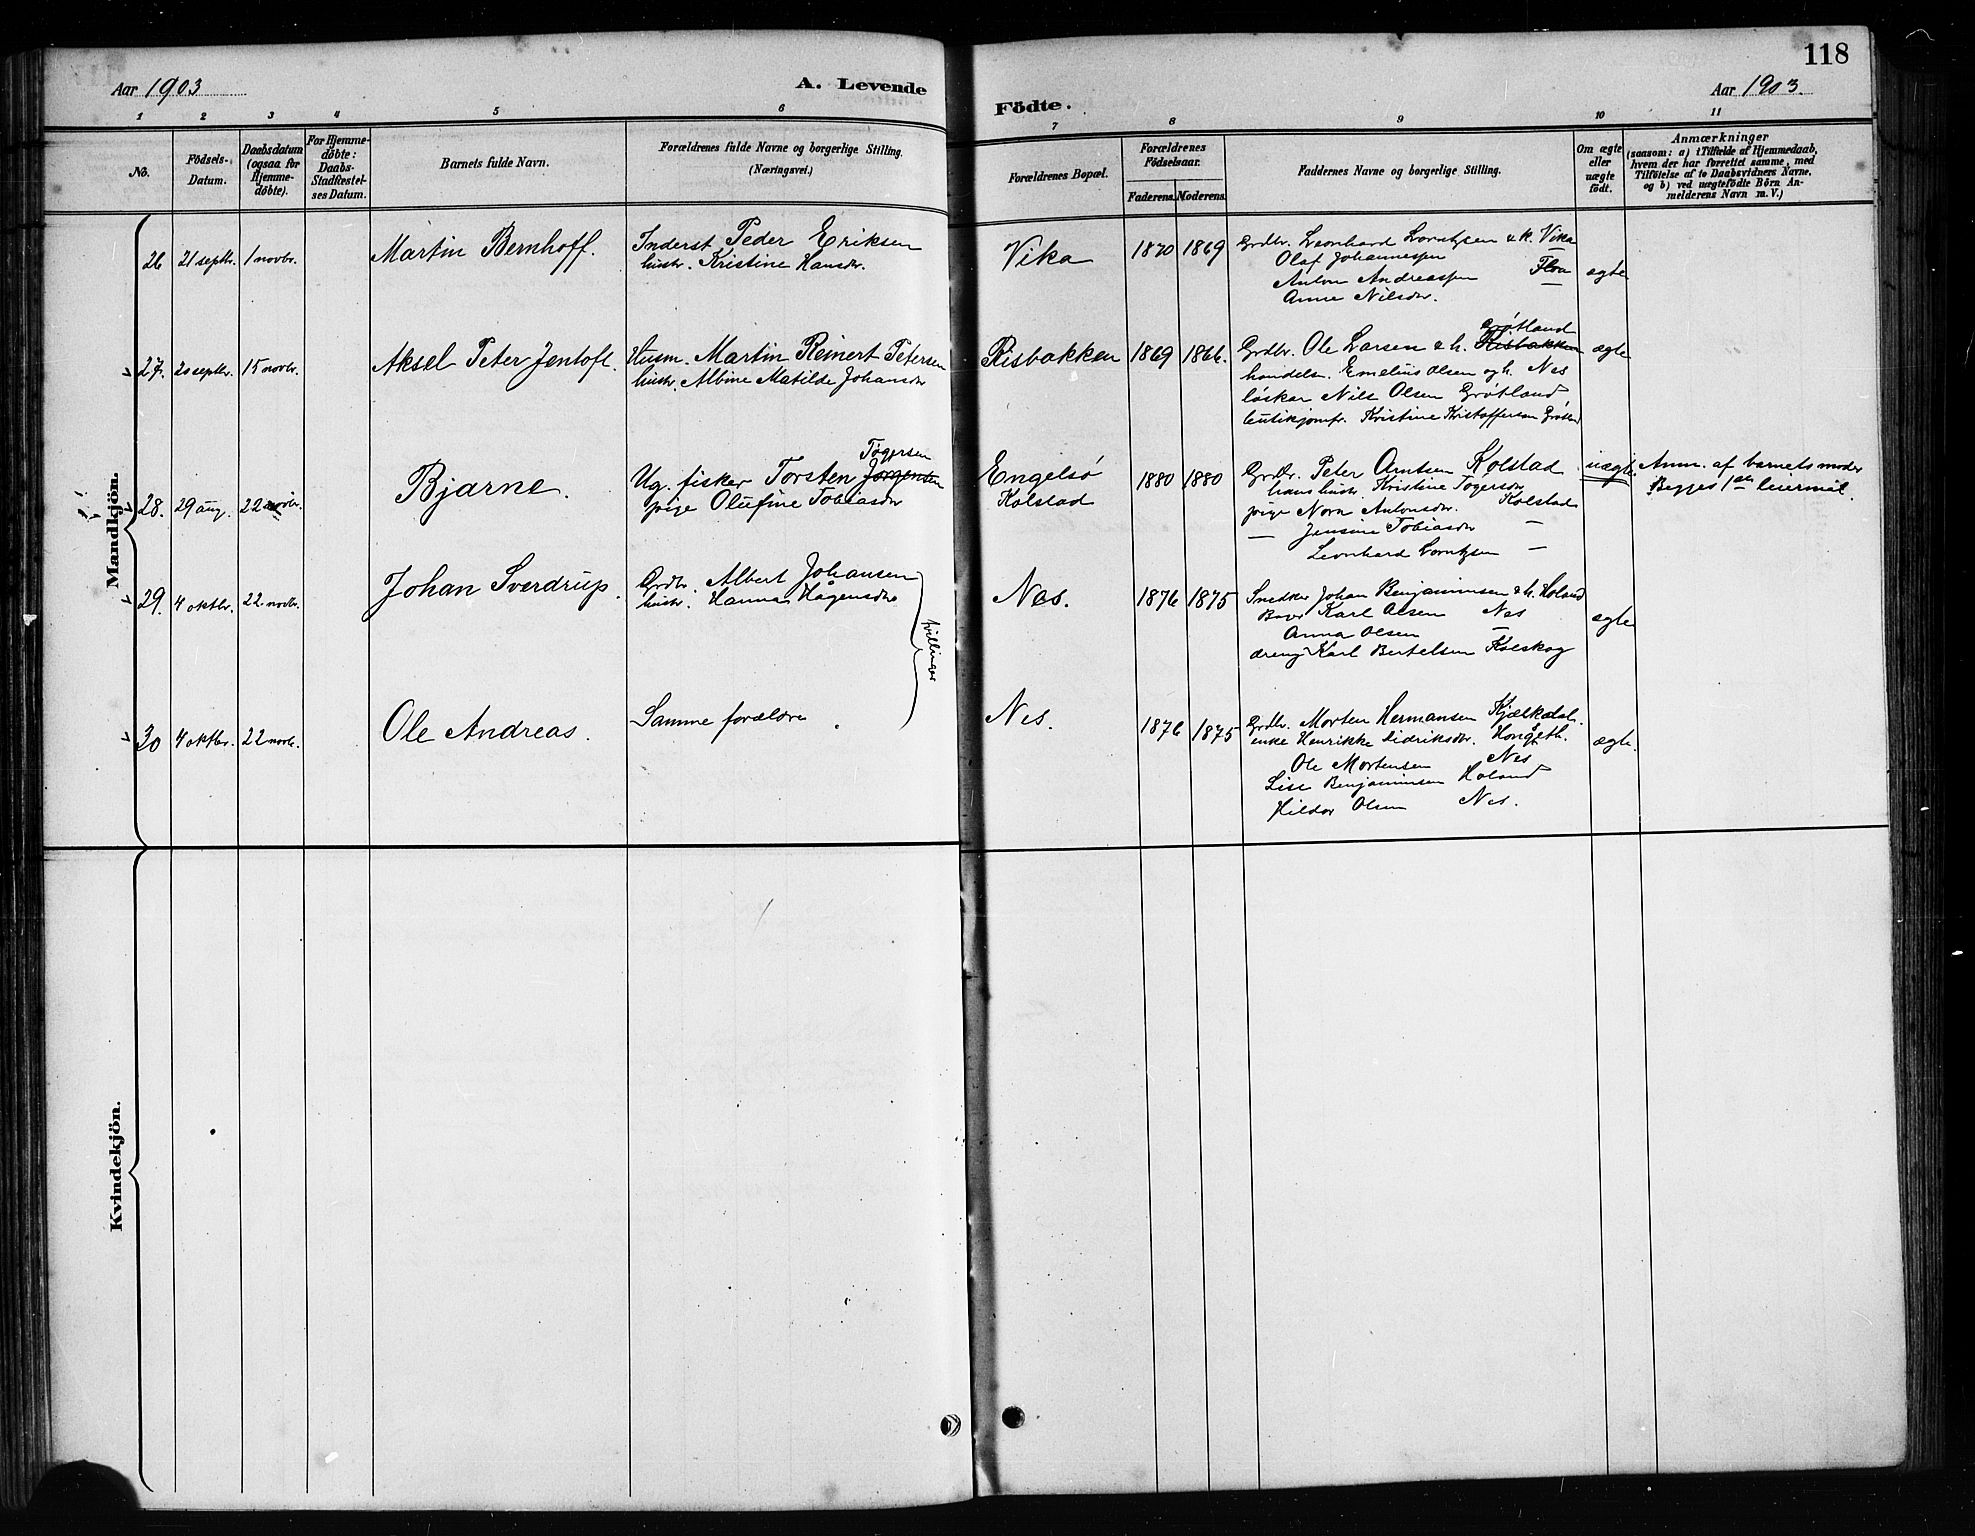 118
Aar 1903
A. Levende
Födte.
Aar 1903.
1 2 3 4 5 6 7 8 9 10 11
No.
Födsels-
Datum.
Daabsdatum
(ogsaa for
Hjemme-
döbte).
For Hjemme-
döbte:
Daabs-
Stadfæstel-
ses Datum.
Barnets fulde Navn.
Forældrenes fulde Navne og borgerlige Stilling.
(Næringsvei.)
Forældrenes Bopæl.
Forældrenes
Födselsaar.
Faderens. Moderens.
Faddernes Navne og borgerlige Stilling.
Om ægte
eller
uægte
födt.
Anmærkninger
(saasom: a) i Tilfælde af Hjemmedaab,
hvem der har forrettet samme, med
Tilföielse af to Daabsvidners Navne,
og b) ved uægtefödte Börn An-
melderens Navn m. V.)
Mandkjön.
26 21 septbr. 1 novbr. Martin Bernhoff.
Inderst Peder Eriksen
hustr. Kristine Hansdtr.
Vika 1870 1869
Grdbr. Leonhard Lorntzen & k. Vika
Olaf Johannessen —
Anton Andreassen Floa
Anne Nilsdtr. —
ægte
27. 20 septbr. 15 novbr. Aksel Peter Jentoft.
Husm. Martin Reinert Petersen
hustr. Albine Matilde Johansdtr
Risbakken 1869 1866.
Grötland
Grdbr. Ole Larsen & h. Risbakken
handelsm. Emelius Olsen og h. Nes
löskar Nils Olsen Grötland
butikjomfr. Kristine Kristoffersen
ægte
28. 29 aug. 22 novbr. Bjarne.
Tögersen
Ug. fisker Torsten Jörgensen
pige Olufine Tobiasdtr
Engelsö
Kolstad
1880 1880
Grdbr. Peter Arntsen Kolstad
hans hustr. Kristine Tögersdtr
pige Nora Antonsdtr. Kolstad
— Jensine Tobiasdtr —
Leonhard Lorntzen —
uægte.
Anm. af barnets moder
Begges 1ste leiermål.
29. 4 oktbr. 22 novbr. Johan Sverdrup.
Grdbr. Albert Johansen
hustr. Hanna Hågensdtr
tvillinger
Nes. 1876 1875
Snedker Johan Benjaminsen & h. Holand
Karl Olsen Nes
Anna Olsen —
dreng Karl Bertelsen Kolskog
ægte
30 4 oktbr. 22 novbr. Ole Andreas.
Samme forældre
Nes. 1876 1875
Grdbr. Morten Hermansen Kjælkdal.
enke Henrikke Didriksdtr.
Ole Mortensen Nes
Lise Benjaminsen Holand
Hildor Olsen Nes.
ægte.
Kvindekjön.